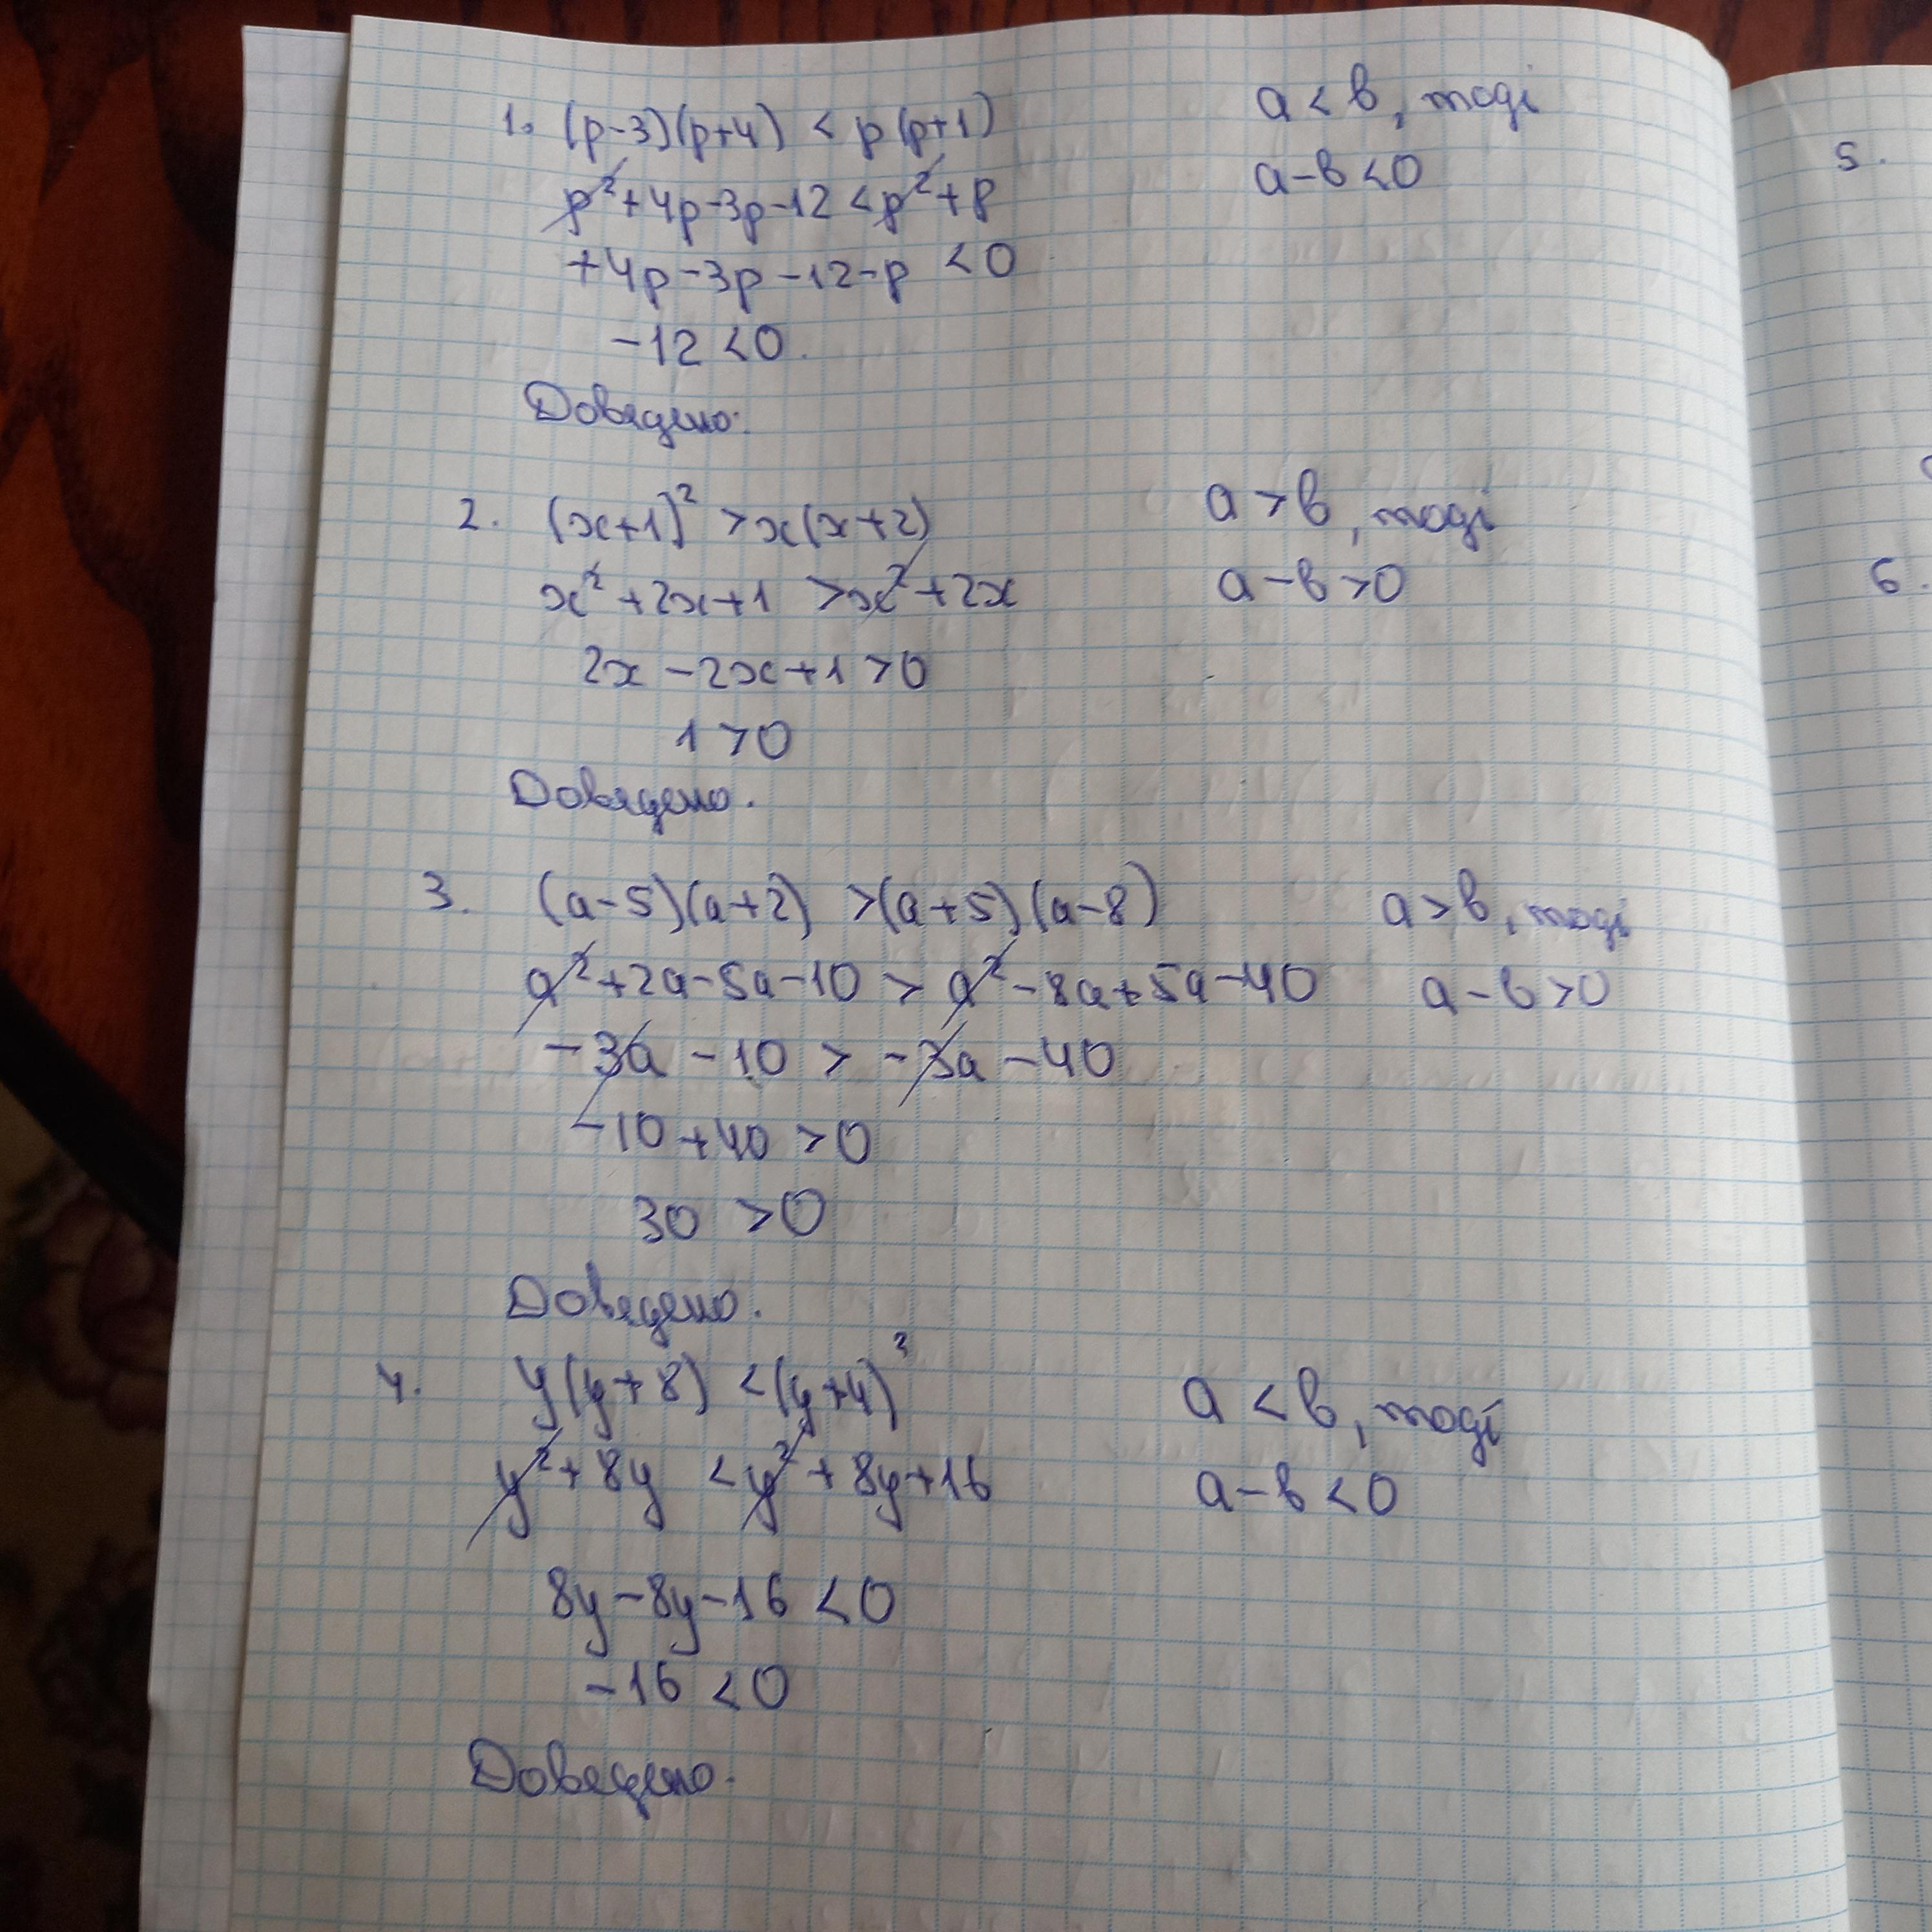 1. (p-3)(p+4) < p(p+1)
a < b, тоді
p²+4p-3p-12 < p²+p
a-b<0
+4p-3p-12-p <0
-12<0.
Доведено.
2. (x+1)² > x(x+2)
a > b, тоді
x²+2x+1 > x²+2x
a-b>0
2x-2x+1>0
1>0
Доведено.
3. (a-5)(a+2) > (a+5)(a-8)
a>b, тоді
a²+2a-5a-10 > a²-8a+5a-40
a-b>0
-3a-10 > -3a-40
-10+40 >0
30 >0
Доведено.
4. y(y+8) < (y+4)²
a < b, тоді
y²+8y < y²+8y+16
a-b<0
8y-8y-16 <0
-16 <0
Доведено.
5.
6.